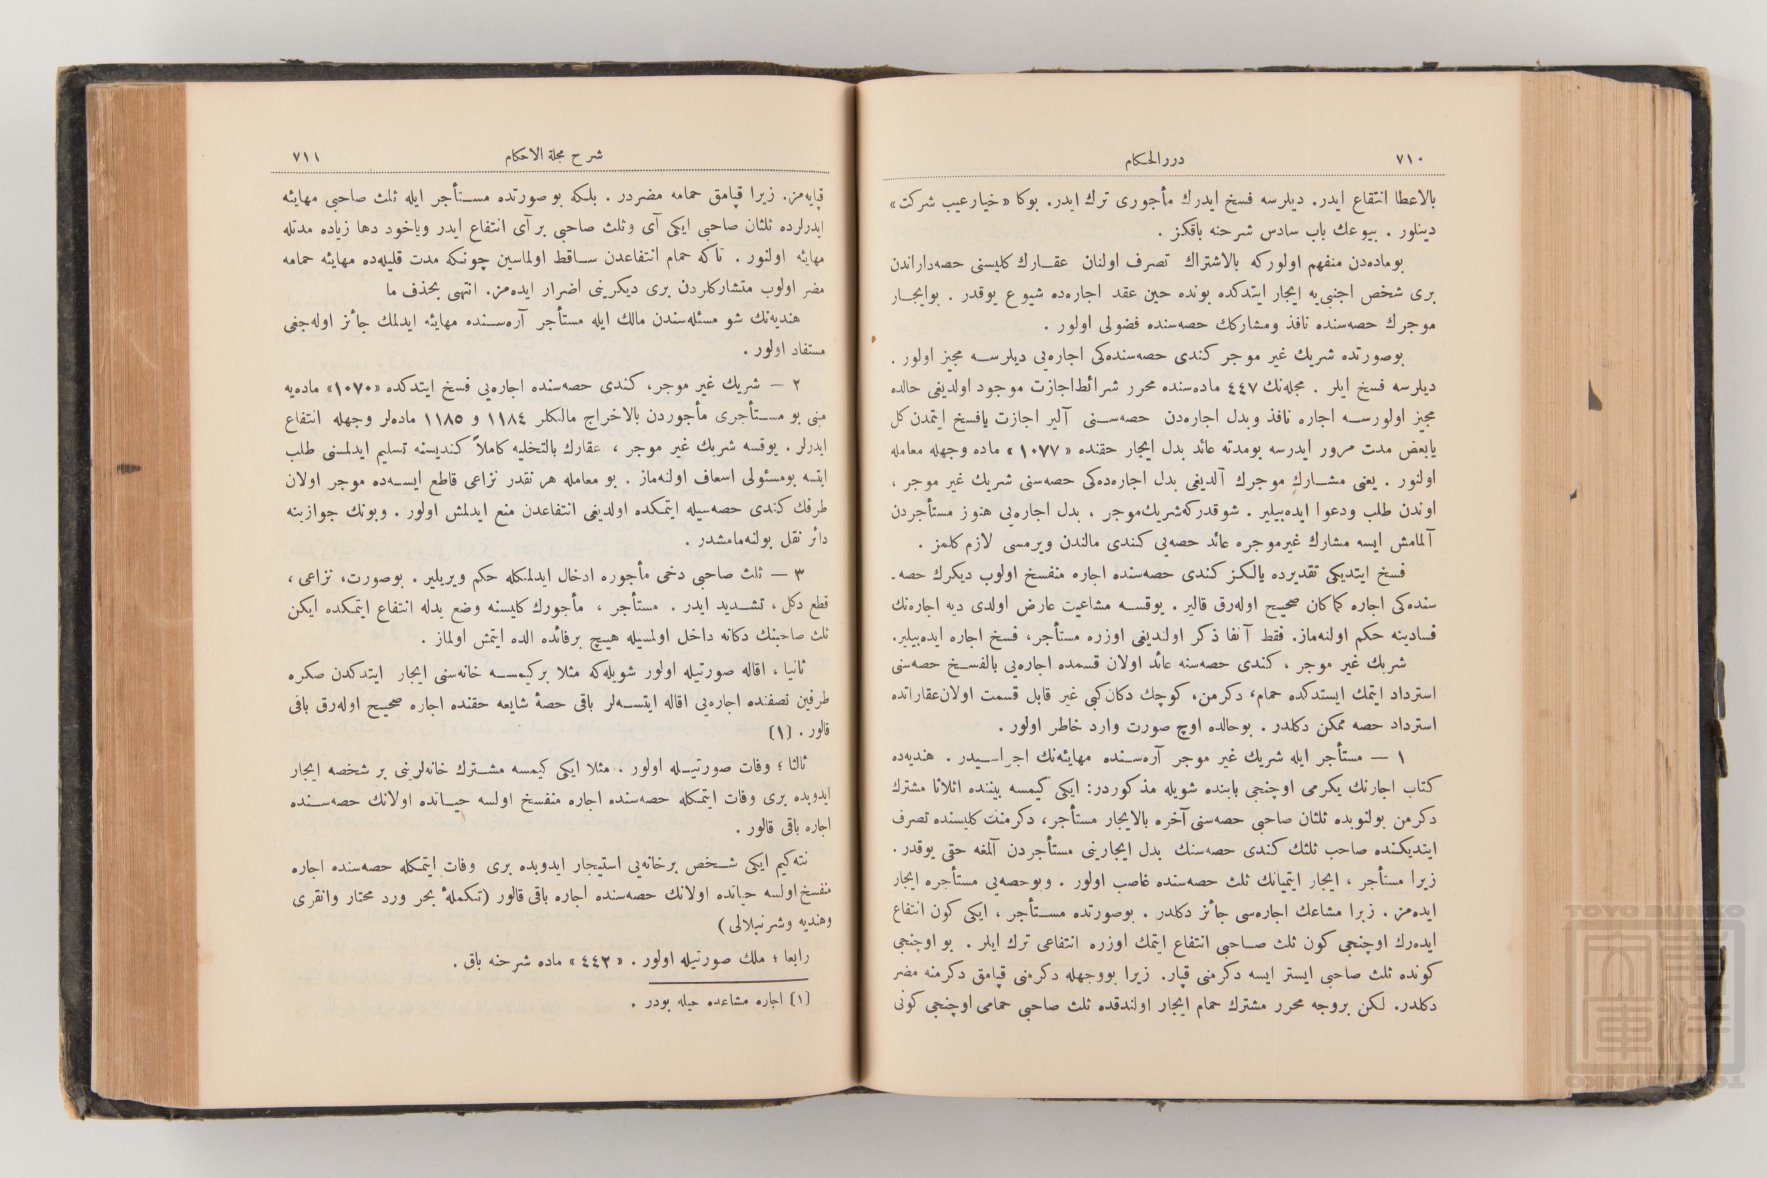 ٧١٠
دررالحكام
بالاعطا انتفاع ايدر. ديلرسه فسخ ايدرك مأجورى ترك ايدر. بوكا «خيارعيب شركت»
دينلور . بيوعك باب سادس شرحنه باقكز .
بوماده‌دن منفهم اولوركه بالاشتراك تصرف اولنان عقــارك كليسنى حصه‌داراندن
برى شخص اجنبى‌يه ايجار ايتدكده بونده حين عقد اجاره‌ده شيوع يوقدر . بوايجــار
موجرك حصه‌سنده نافذ ومشاركك حصه‌سنده فضولى اولور .
بوصورتده شريك غير موجر كندى حصه‌سنده‌كى اجاره‌يى ديلرســه مجيز اولور .
ديلرسه فسخ ايلر . مجله‌نك ٤٤٧ ماده‌سنده محرر شرائط‌اجازت موجود اولديغى حالده
مجيز اولورســه اجاره نافذ وبدل اجاره‌دن حصه‌ســنى آلير اجازت يافسخ ايتمدن كل
يابعض مدت مرور ايدرسه بومدته عائد بدل ايجار حقنده «١٠٧٧» ماده وجهله معامله
اولنور . يعنى مشــارك موجرك آلديغى بدل اجاره‌ده‌كى حصه‌سنى شريك غير موجر ،
اوندن طلب ودعوا ايده‌بيلير . شوقدركه‌شريك‌موجر ، بدل اجاره‌يى هنوز مستأجردن
آلمامش ايسه مشارك غيرموجره عائد حصه‌يى كندى مالندن ويرمسى لازم كلمز .
فسخ ايتديكى تقديرده يالكز كندى حصه‌سنده اجاره منفسخ اولوب ديكرك حصه‌ـ
سنده‌كى اجاره كماكان صحيح اوله‌رق قالير . يوقســه مشاعيت عارض اولدى ديه اجاره‌نك
فسادينه حكم اولنه‌ماز. فقط آنفا ذكر اولنديغى اوزره مستأجر، فسخ اجاره ايده‌بيلير.
شريك غير موجر ، كندى حصه‌سنه عائد اولان قسمده اجاره‌يى بالفســخ حصه‌سنى
استرداد ايتمك ايستدكده حمام، دكرمن، كوچك دكان‌كبى غير قابل قسمت اولان‌عقاراتده
استرداد حصه ممكن دكلدر . بوحالده اوچ صورت وارد خاطر اولور .
١ — مستأجر ايله شريك غير موجر آره‌ســنده مهايئه‌نك اجراســيدر . هنديه‌ده
كتاب اجارنك يكرمى اوچنجى بابنده شويله مذكوردر: ايكى كيمسه بيننده اثلاثا مشترك
دكرمن بولنوبده ثلثان صاحبى حصه‌سنى‌آخره بالايجار مستأجر، دكرمنك كليسنده تصرف
ايتديكنده صاحب ثلثك كندى حصه‌سنك بدل ايجارينى مستأجردن آلمغه حقى يوقدر.
زيرا مستأجر ، ايجار ايتميانك ثلث حصه‌سنده غاصب اولور . وبوحصه‌يى مستأجره ايجار
ايده‌مز . زيرا مشاعك اجاره‌سى جائز دكلدر . بوصورتده مســتأجر ، ايكى كون انتفاع
ايده‌رك اوچنجى كون ثلث صــاحبى انتفاع ايتمك اوزره انتفاعى ترك ايلر . بو اوچنجى
كونده ثلث صاحبى ايستر ايسه دكرمنى قپار. زيرا بووجهله دكرمنى قپامق دكرمنه مضر
دكلدر. لكن بروجه محرر مشترك حمام ايجار اولندقده ثلث صاحبى حمامى اوچنجى كونى
شرح مجلة الاحكام
٧١١
قپايه‌مز. زيرا قپامق حمامه مضردر . بلكه بوصورتده مســتأجر ايله ثلث صاحبى مهايئه
ايدرلرده ثلثان صاحبى ايكى آى وثلث صاحبى برآى انتفاع ايدر وياخود دها زياده مدتله
مهايئه اولنور . تاكه حمام انتفاعدن ســاقط اولماسين چونكه مدت قليله‌ده مهايئه حمامه
مضر اولوب متشاركلردن برى ديكرينى اضرار ايده‌مز. انتهى بحذف ما
هنديه‌نك شو مسئله‌سندن مالك ايله مستأجر آره‌ســنده مهايئه ايدلمك جائز اوله‌جغى
مستفاد اولور .
٢ — شريك غير موجر، كندى حصه‌سنده اجاره‌يى فسخ ايتدكده «١٠٧٠» ماده‌يه
مبنى بو مســتأجرى مأجوردن بالاخراج مالكلر ١١٨٤ و ١١٨٥ ماده‌لر وجهله انتفاع
ايدرلر . يوقسه شريك غير موجر ، عقارك بالتخليه كاملاً كنديسنه تسليم ايدلمسنى طلب
ايتسه بومسئولى اسعاف اولنه‌ماز . بو معامله هر نقدر نزاعى قاطع ايســه‌ده موجر اولان
طرفك كندى حصه‌سيله ايتمكده اولديغى انتفاعدن منع ايدلمش اولور . وبونك جوازينه
دائر نقل بولنه‌مامشدر .
٣ — ثلث صاحبى دخى مأجوره ادخال ايدلمكله حكم ويريلير . بوصورت، نزاعى ،
قطع دكل ، تشــديد ايدر . مستأجر ، مأجورك كليسنه وضع يدله انتفاع ايتمكده ايكن
ثلث صاحبنك دكانه داخل اولمسيله هيچ برفائده الده ايتمش اولماز .
ثانيا ، اقاله صورتيله اولور شويله‌كه مثلا بركيمســه خانه‌سنى ايجار ايتدكدن صكره
طرفين نصفنده اجاره‌يى اقاله ايتســه‌لر باقى حصهٔ شايعه حقنده اجاره صحيح اوله‌رق باقى
قالور . (١)
ثالثا ؛ وفات صورتيــله اولور . مثلا ايكى كيمسه مشــترك خانه‌لرينى بر شخصه ايجار
ايدوبده برى وفات ايتمكله حصه‌سنده اجاره منفسخ اولسه حيــاتده اولانك حصه‌ســنده
اجاره باقى قالور .
نته‌كيم ايكى شــخص برخانه‌يى استيجار ايدوبده برى وفات ايتمكله حصه‌سنده اجاره
منفسخ‌اولسه حياتده اولانك حصه‌سنده اجاره باقى قالور (تكملهٔ بحر ورد محتار وانقرى
وهنديه وشرنبلالى)
رابعا ؛ ملك صورتيله اولور . «٤٤٢» ماده شرحنه باق .
(١) اجاره مشاعده حيله بودر .
TOYO BUNKO
東洋文庫
TOYO BUNKO